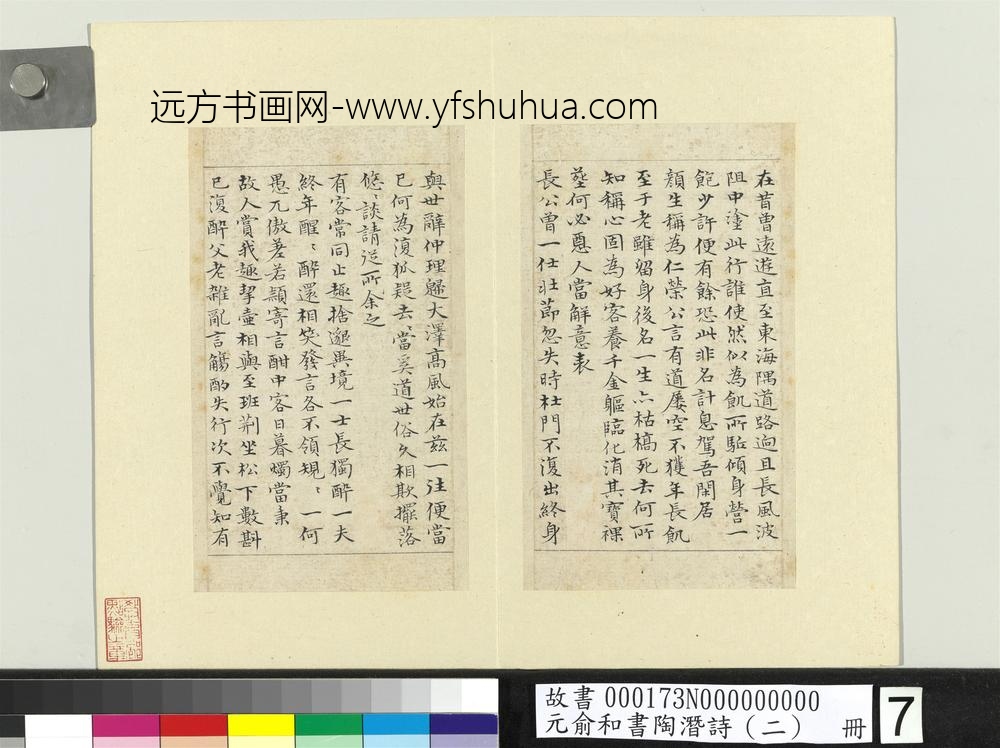 远方书画网-www.yfshuhua.com
在昔曾遠遊直至東海隅道路迥且長風波
阻中塗此行誰使然似為飢所駈傾身營一
飽少許便有餘恐此非名計息駕吾閑居
顏生稱為仁榮公言有道屢空不獲年長飢
至于老雖留身後名一生亦枯槁死去何所
知稱心固為好客養千金軀臨化消其寶裸
塟何必惡人當解意表
長公曾一仕壯節忽失時杜門不復出終身
與世辭仲理歸大澤高風始在兹一往便當
已何為復狐疑去、當奚道世俗久相欺擺落
悠、談請從所余之
有客常同止趣捨邈異境一士長獨醉一夫
終年醒、醉還相笑發言各不領規、一何
愚兀傲差若穎寄言酣中客日暮燭當秉
故人賞我趣挈壷相與至班荆坐松下數斟
已復醉父老雜亂言觴酌失行次不覺知有
故書 000173N000000000
元俞和書陶潛詩（二） 冊
7